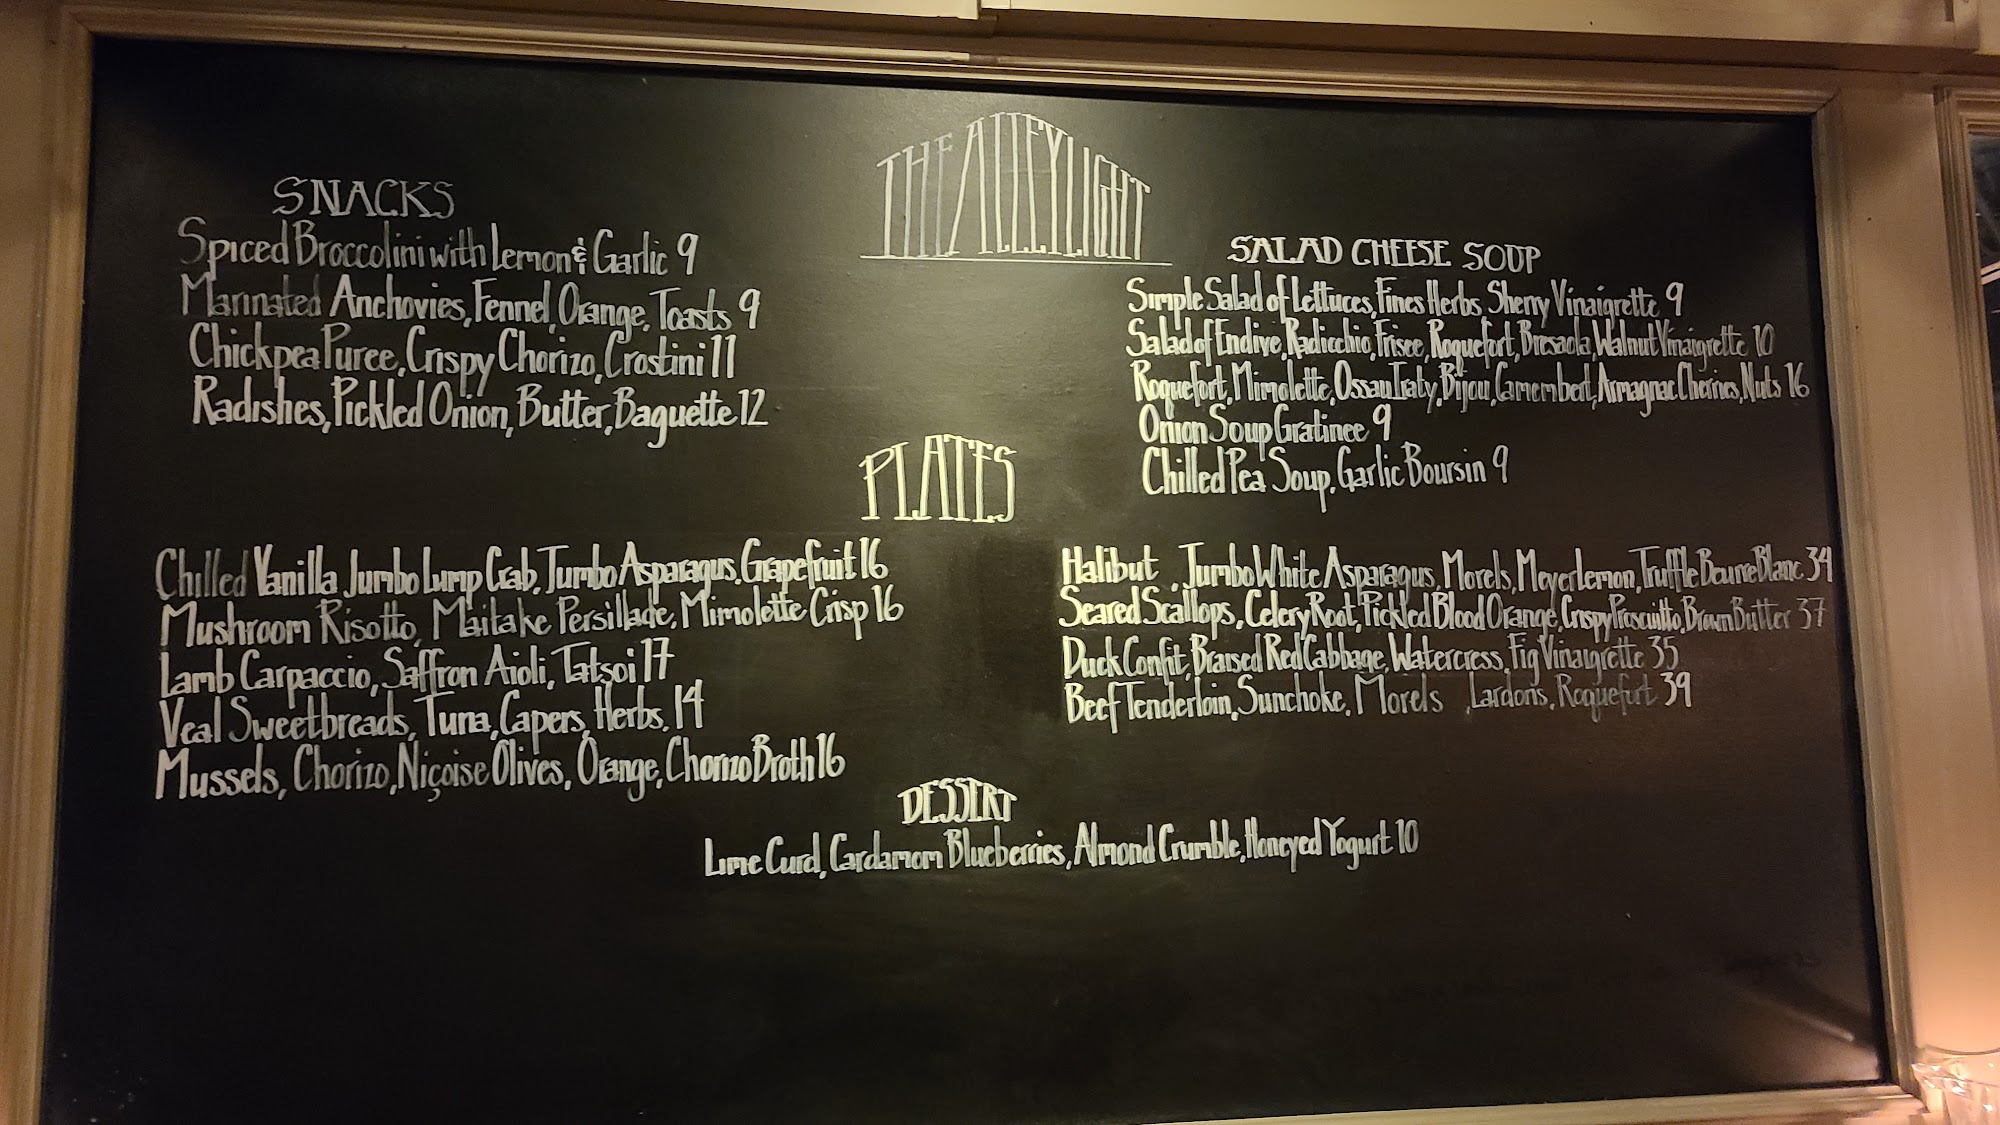 THE ALLEY LIGHT
SNACKS
Spiced Broccolini with Lemon & Garlic 9
Marinated Anchovies, Fennel, Orange, Toasts 9
Chickpea Puree, Crispy Chorizo, Crostini 11
Radishes, Pickled Onion, Butter, Baguette 12
SALAD CHEESE SOUP
Simple Salad of Lettuces, Fines Herbs, Sherry Vinaigrette 9
Salad of Endive, Radicchio, Frisee, Roquefort, Bresaola, Walnut Vinaigrette 10
Roquefort, Mimolette, Ossau Iraty, Bijou, Camembert, Armagnac Cherries, Nuts 16
Onion Soup Gratinee 9
Chilled Pea Soup, Garlic Boursin 9
PLATES
Chilled Vanilla Jumbo Lump Crab, Jumbo Asparagus, Grapefruit 16
Mushroom Risotto, Maitake Persillade, Mimolette Crisp 16
Lamb Carpaccio, Saffron Aioli, Tatsoi 17
Veal Sweetbreads, Tuna, Capers, Herbs, 14
Mussels, Chorizo, Niçoise Olives, Orange, Chorizo Broth 16
Halibut, Jumbo White Asparagus, Morels, Meyer Lemon, Truffle Beurre Blanc 34
Seared Scallops, Celery Root, Pickled Blood Orange, Crispy Proscuitto, Brown Butter 37
Duck Confit, Braised Red Cabbage, Watercress, Fig Vinaigrette 35
Beef Tenderloin, Sunchoke, Morels, Lardons, Roquefort 39
DESSERT
Lime Curd, Cardamom Blueberries, Almond Crumble, Honeyed Yogurt 10